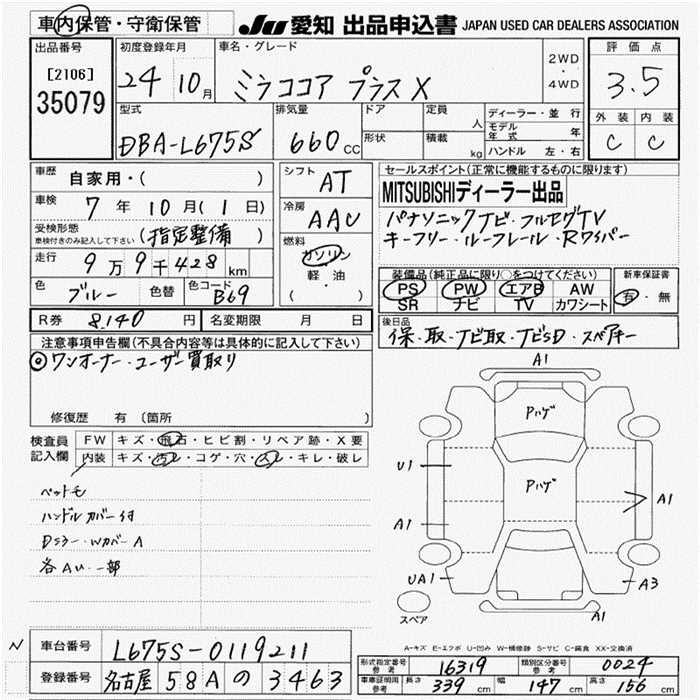 車内保管・守衛保管 JU 愛知 出品申込書 JAPAN USED CAR DEALERS ASSOCIATION
出品番号 [2106] 35079
初度登録年月 24 10月
車名・グレード ミラココア プラス X
2WD・4WD
評価点 3.5
外装 C 内装 C
型式 DBA-L675S
排気量 660 CC
ドア 形状
定員 人
積載 kg
ディーラー・並行
モデル年式 年
ハンドル 左・右
車歴 自家用・( )
車検 7年 10月(1日)
受検形態 車検付きのみ記入して下さい (指定整備)
走行 9万9千428 km
色 ブルー 色替 色コード B69
シフト AT
冷房 AAC
燃料 ガソリン 軽油 ( )
セールスポイント(正常に機能するものに限ります)
MITSUBISHIディーラー出品
パナソニックナビ・フルセグTV
キーフリー・ルーフレール・Rワイパー
装備品(純正品に限り○をつけてください)
PS PW エアB AW
SR ナビ TV カワシート
新車保証書 有・無
R券 8,140円 名変期限 月 日
後日品 保・取・ナビ取・ナビSD・スペアキー
注意事項申告欄(不具合内容等は具体的に記入して下さい)
◎ワンオーナー・ユーザー買取り
修復歴 有(箇所 )
検査員記入欄
FW キズ・飛石・ヒビ割・リペア跡・X要
内装 キズ・汚レ・コゲ・穴・スレ・キレ・破レ
ペットモ
ハンドルカバー付
各AU・一部
A1
Pハゲ
Pハゲ
U1
A1
A1
UA1
A3
A1
スペア
A-キズ E-エクボ U-凹み W-補修跡 S-サビ C-腐食 XX-交換済
N
車台番号 L675S-0119211
登録番号 名古屋 58A の 3463
形式指定番号参考 16319 類別区分番号参考 0024
車車証明用参考 長さ 339 cm 幅 147 cm 高さ 156 cm